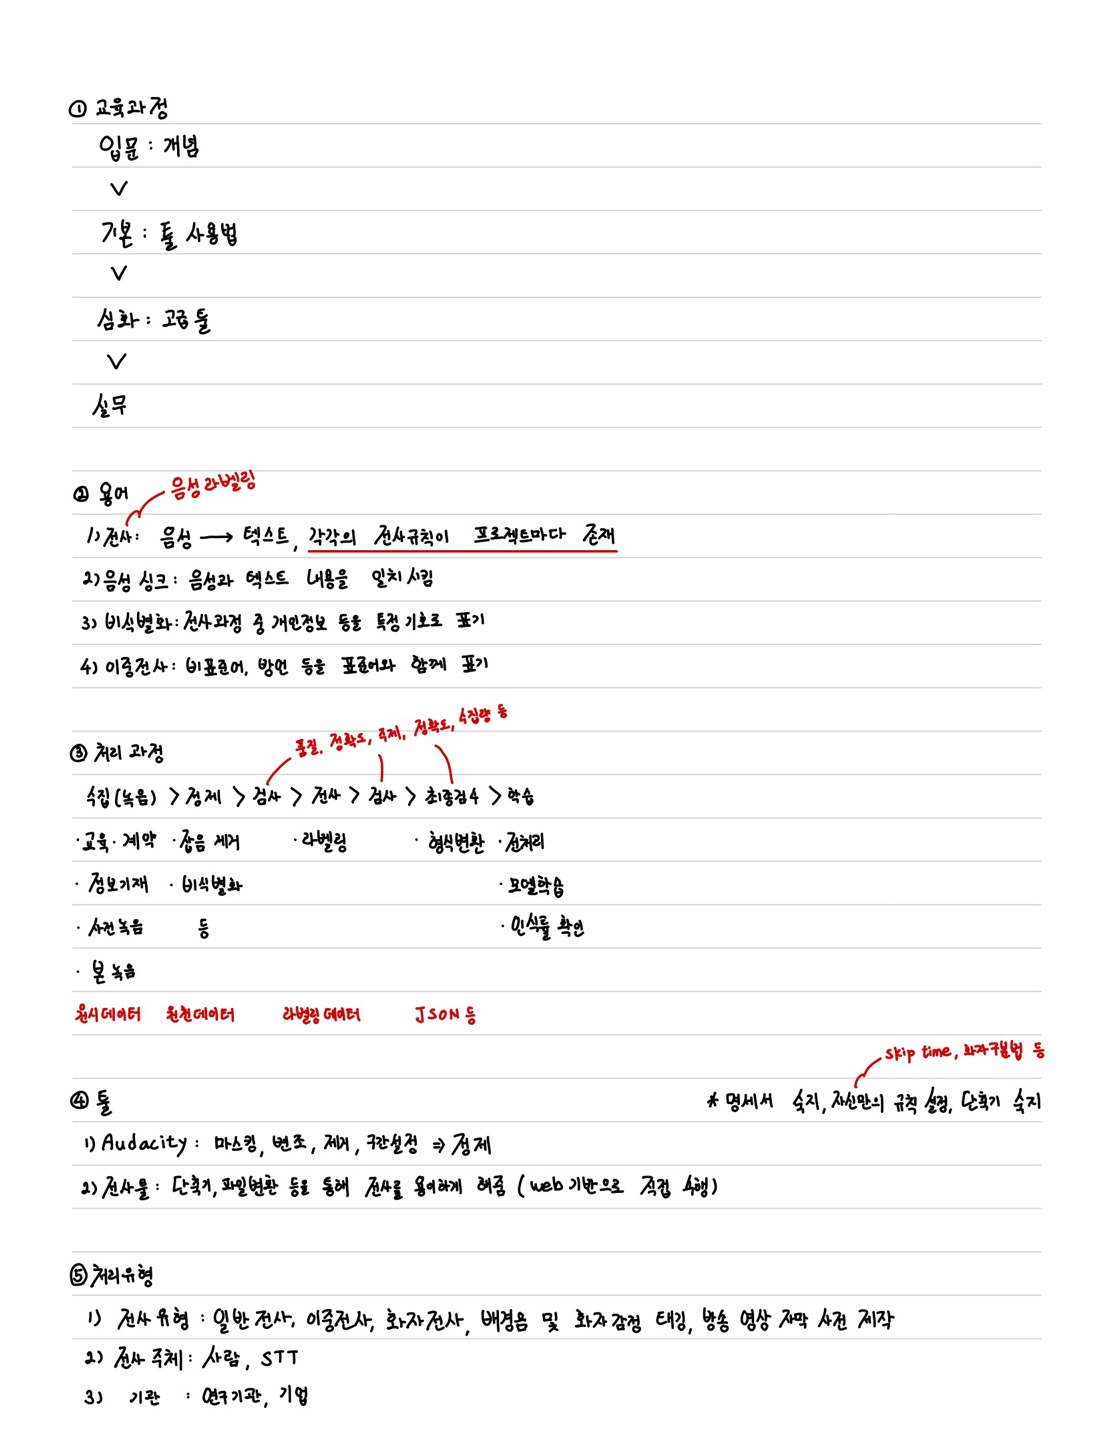 ① 교육과정
입문 : 개념
∨
기본 : 툴 사용법
∨
심화 : 고급 툴
∨
실무
음성라벨링
② 용어
1) 전사 : 음성 → 텍스트, 각각의 전사규칙이 프로젝트마다 존재
2) 음성 싱크 : 음성과 텍스트 내용을 일치시킴
3) 비식별화 : 전사과정 중 개인정보 등을 특정 기호로 표기
4) 이중전사 : 비표준어, 방언 등을 표준어와 함께 표기
품질, 정확도, 주제, 정확도, 수집량 등
③ 처리 과정
수집(녹음) > 정제 > 검사 > 전사 > 검사 > 최종검수 > 학습
· 교육 · 계약 · 잡음 제거 · 라벨링 · 형식변환 · 전처리
· 정보기재 · 비식별화 · 모델학습
· 사전녹음 등 · 인식률 확인
· 본 녹음
원시데이터 원천데이터 라벨링데이터 JSON 등
skip time, 화자구분법 등
④ 툴 * 명세서 숙지, 자신만의 규칙 설정, 단축키 숙지
1) Audacity : 마스킹, 변조, 제거, 구간설정 ⇒ 정제
2) 전사툴 : 단축키, 파일변환 등을 통해 전사를 용이하게 해줌 (web 기반으로 직접 수행)
⑤ 처리유형
1) 전사 유형 : 일반전사, 이중전사, 화자전사, 배경음 및 화자감정 태깅, 방송 영상 자막 사전 제작
2) 전사 주체 : 사람, STT
3) 기관 : 연구기관, 기업